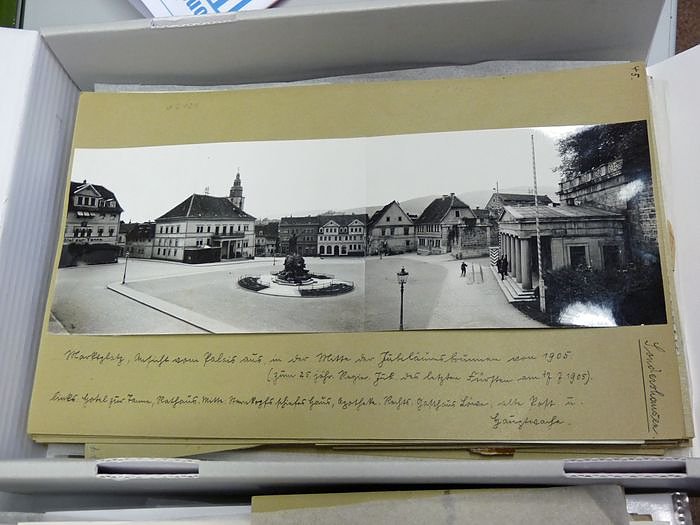 45.
Marktplatz, Ansicht vom Palais aus, in der Mitte der Jubiläumsbrunnen von 1905
(zum 25. jähr. Regier. Jub. des letzten Fürsten am 17. 7. 1905).
links Hotel zur Tanne, Rathaus. Mitte: schiefes Haus, Apotheke. Rechts: Gasthaus Löwe, alte Post u.
Hauptwache.
Sondershausen